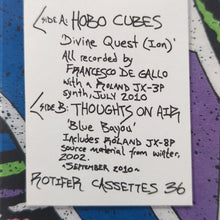 SIDE A: HOBO CUBES
'Divine Quest (Ion)'
All recorded by
FRANCESCO DE GALLO
with a ROLAND JX-3P
synth, JULY 2010
SIDE B: THOUGHTS ON AIR
'Blue Bayou'
Includes ROLAND JX-8P
source material from winter,
2002.
~SEPTEMBER 2010~
ROTIFER CASSETTES 36